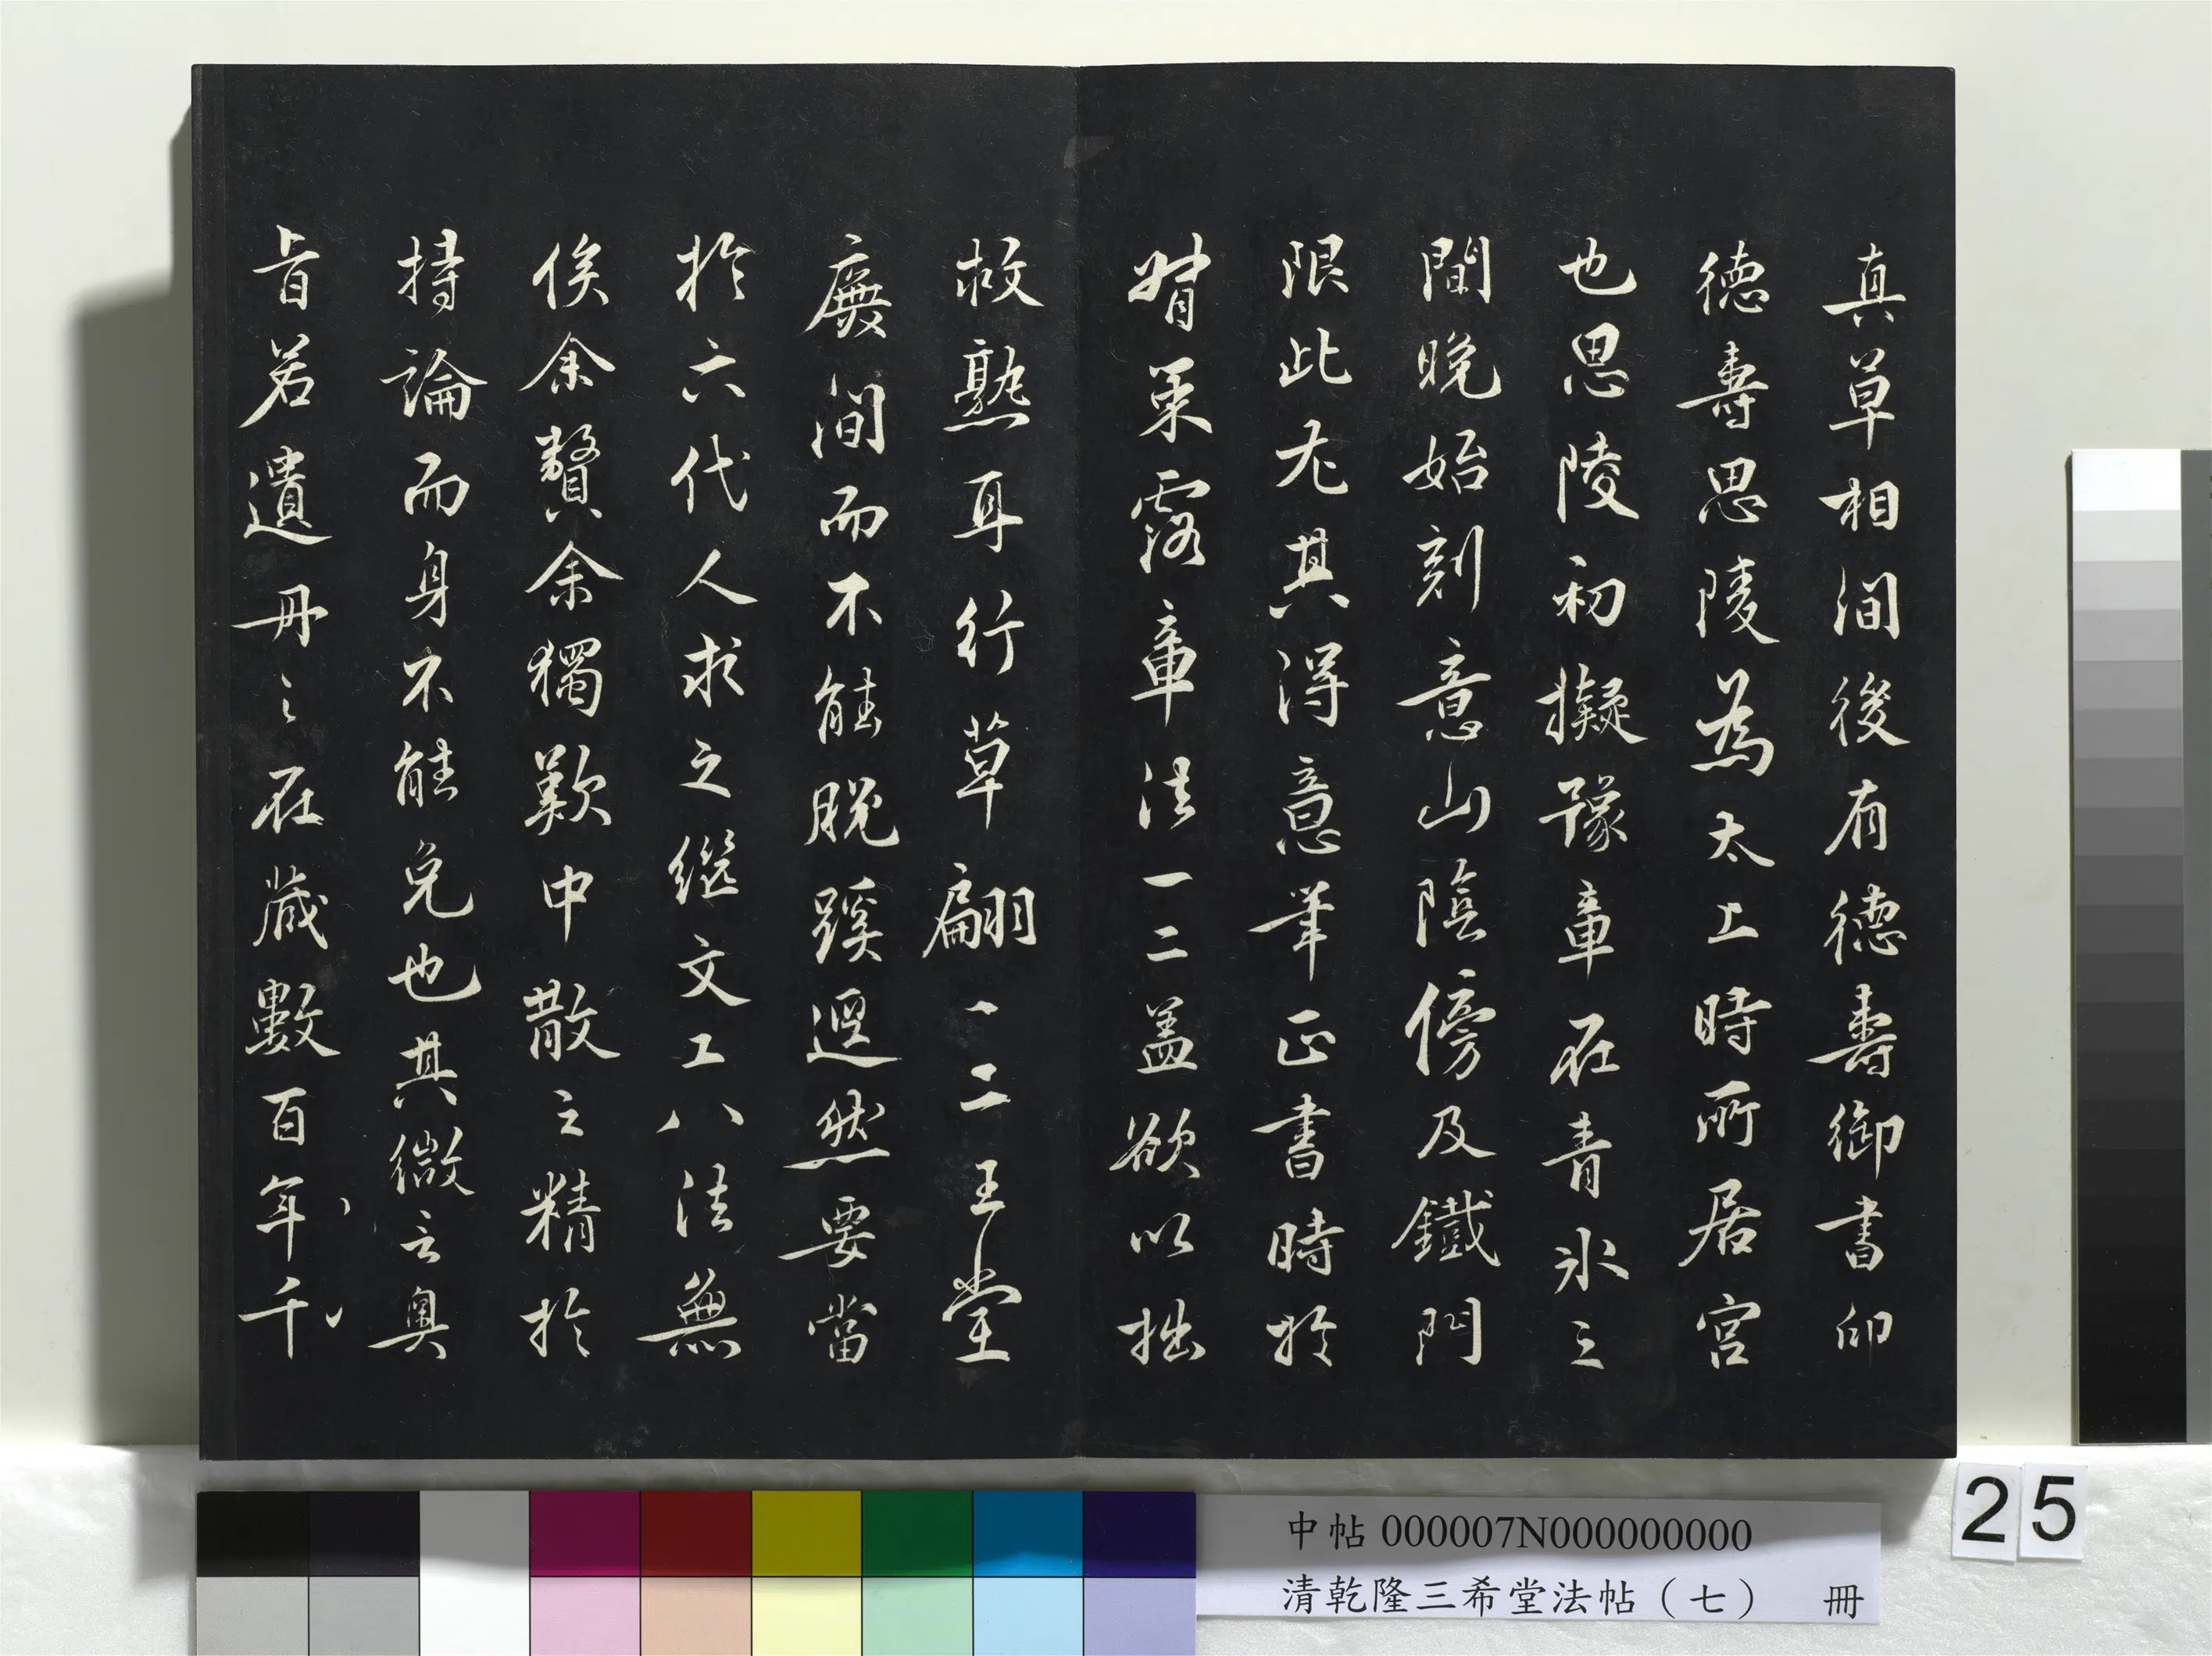 真草相間後有德壽御書印
德壽思陵為太上時所居宮
也思陵初擬豫章在青氷之
間晚始刻意山陰傍及鐵門
限此尤其得意筆正書時於
波策露章法一二盖欲以拙
故熟耳行草翩一二王堂
廡間而不能脫蹊逕然要當
於六代人求之繼文工八法無
俟余贅余獨歎中散之精於
持論而身不能免也其微言奧
旨若遺丹之在藏數百年千
中帖 000007N000000000
清乾隆三希堂法帖（七） 冊
25